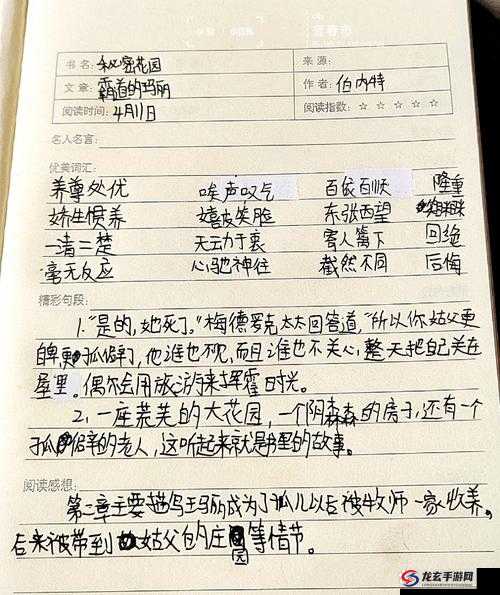 书名：秘密花园 来源：
文章：霸道的玛丽 作者：伯内特
阅读时间：4月11日 阅读指数：☆ ☆ ☆ ☆ ☆
名人名言：
优美词汇：
养尊处优 唉声叹气 百依百顺 隆重
娇生惯养 嬉皮笑脸 东张西望
一清二楚 无动于衷 寄人篱下 回绝
毫无反应 心驰神往 截然不同 后悔
精彩句段：
1."是的，她死了。"梅德罗克太太回答道，"所以你姑父更
孤僻了，他谁也不见，而且谁也不关心，整天把自己关在
屋里。偶尔会用旅游来挥霍时光。
2，一座荒芜的大花园，一个阴森森的房子，还有一个
孤僻的老人，这听起来就是书里的故事。
阅读感想：
第二章主要描写玛丽成为了孤儿以后被牧师一家收养，
后来被带到姑父的庄园等情节。
龙玄手游网